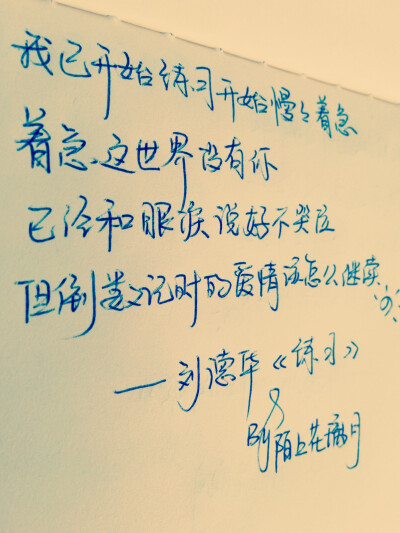 我已开始练习开始慢々着急
着急、这世界没有你
已经和眼泪说好不哭泣
但倒数记时的爱情该怎么继续
——刘德华《练习》
By陌上花满月